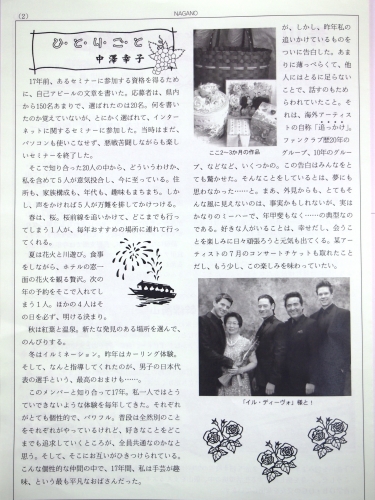 (2)
NAGANO
ひ・と・り・ご・と
中澤幸子
17年前、あるセミナーに参加する資格を得るため
に、自己アピールの文章を書いた。応募者は、県内
から150名あまりで、選ばれたのは20名。何を書い
たのか覚えていないが、とにかく選ばれて、インター
ネットに関するセミナーに参加した。当時はまだ、
パソコンも使いこなせず、悪戦苦闘しながらも楽し
いセミナーを終了した。
そこで知り合った20人の中から、どういうわけか、
私を含めて5人が意気投合し、今に至っている。住
所も、家族構成も、年代も、趣味もまちまち。しか
し、声をかければ5人が万難を排してかけつける。
春は、桜。桜前線を追いかけて、どこまでも行っ
てしまう1人が、毎年おすすめの場所に連れて行っ
てくれる。
夏は花火と川遊び。食事
をしながら、ホテルの窓一
面の花火を観る贅沢。次の
年の予約をそこで入れてし
まう1人。ほかの4人はそ
の日を必ず、明ける決まり。
秋は紅葉と温泉。新たな発見のある場所を選んで、
のんびりする。
冬はイルミネーション。昨年はカーリング体験。
そして、なんと指導してくれたのが、男子の日本代
表の選手という、最高のおまけも……。
このメンバーと知り合って17年。私一人ではとう
ていできないような体験を毎年してきた。それぞれ
がとても個性的で、パワフル。普段は全然別のこと
をそれぞれがやっているけれど、好きなことをどこ
までも追求していくところが、全員共通なのかなと
思う。そして、そこにお互いがひきつけられている。
こんな個性的な仲間の中で、17年間、私は手芸が趣
味、という最も平凡なおばさんだった。
ここ2～3か月の作品
が、しかし、昨年私の
追いかけているものを
ついに告白した。あま
りに薄っぺらくて、他
人にはとるに足らない
ことで、話すのもため
らわれていたこと。そ
れは、海外アーティス
トの自称「追っかけ」。
ファンクラブ歴20年の
グループ、10年のグルー
プ、などなど、いくつかの。この告白はみんなをと
ても驚かせた。そんなことをしているとは、夢にも
思わなかった……と。まあ、外見からも、とてもそ
んな風に見えないのは、事実かもしれないが、実は
かなりのミーハーで、年甲斐もなく……の典型なの
である。好きな人がいることは、幸せだし、会うこ
とを楽しみに日々頑張ろうと元気も出てくる。某アー
ティストの7月のコンサートチケットも取れたこと
だし、もう少し、この楽しみを味わっていたい。
「イル・ディーヴォ」様と!